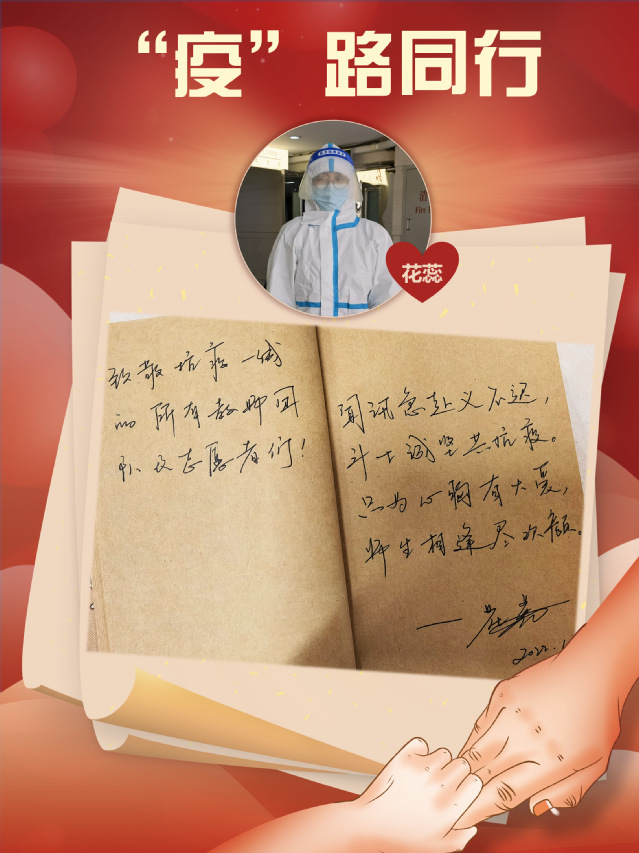 “疫”路同行
花蕊
致敬抗疫一线
的所有教师团
队及志愿者们！
闻讯急赴义不迟，
斗士诚坚共抗疫。
只为心胸有大爱，
师生相逢尽欢颜。
2022.1